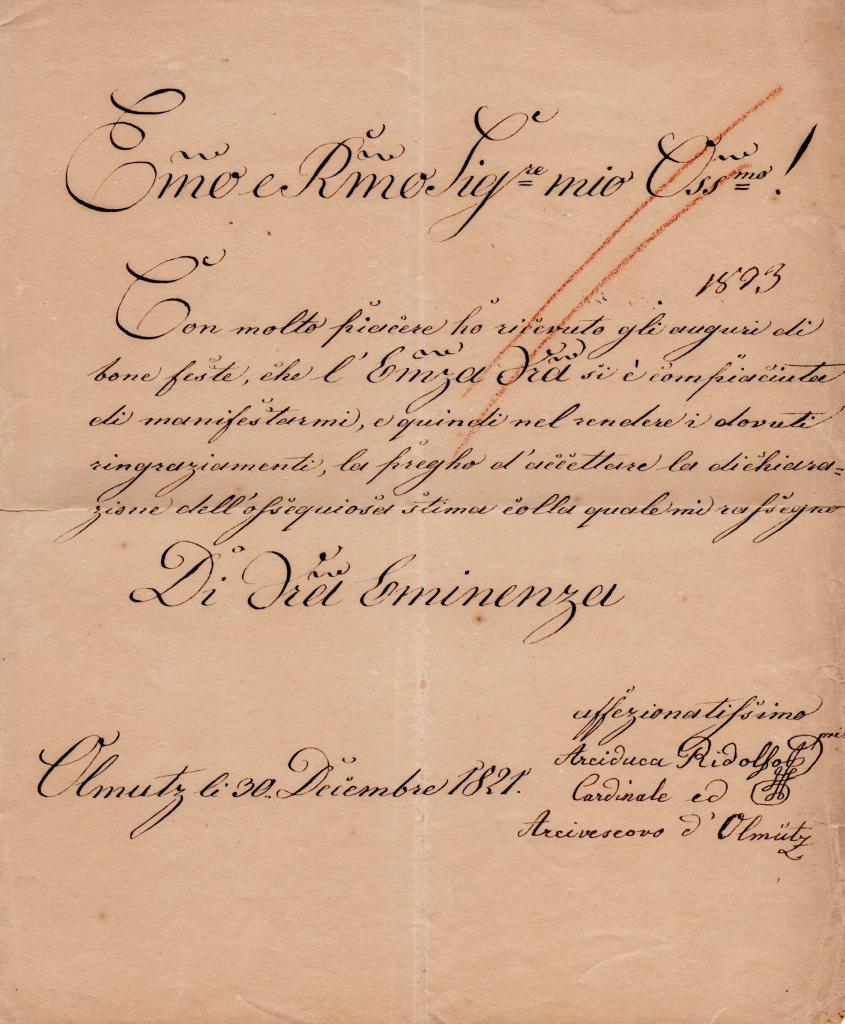 Emo e Rmo Sigre mio Ossmo!
1893
Con molto piacere ho ricevuto gli auguri di
bone feste, che l'Emza Vra si è compiaciuta
di manifestarmi, e quindi nel rendere i dovuti
ringraziamenti, la pregho d'accettare la dichiara=
zione dell'ossequiosa stima colla quale mi rassegno
Di Vra Eminenza
affezionatissimo
Arciduca Ridolfo
Cardinale ed
Arcivescovo d'Olmütz
Olmutz li 30. Decembre 1821.